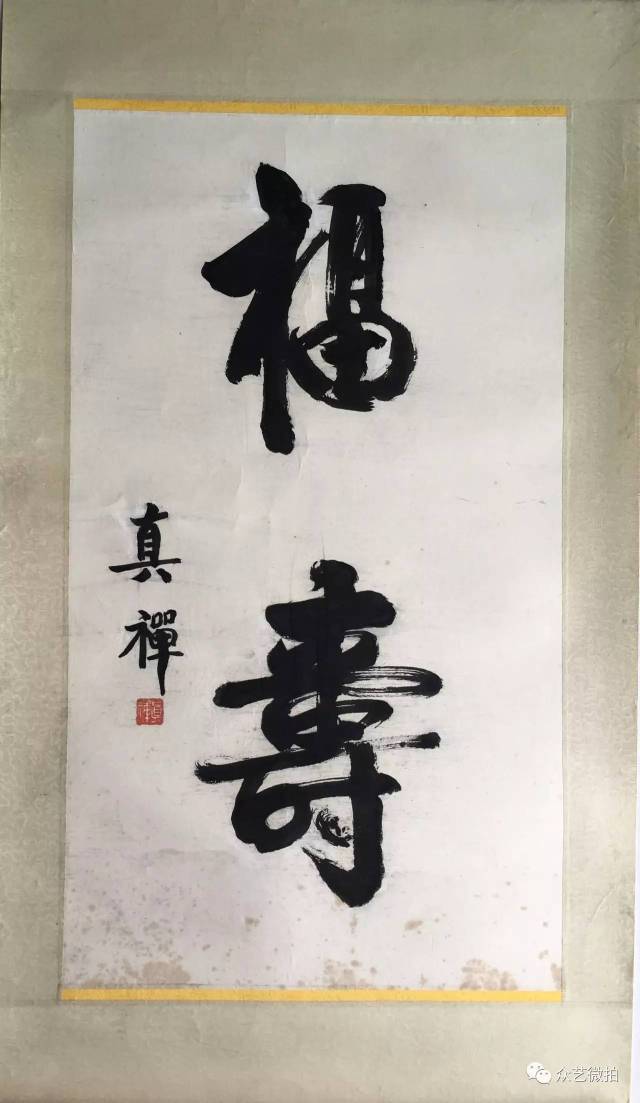 福壽
真禪
众艺微拍